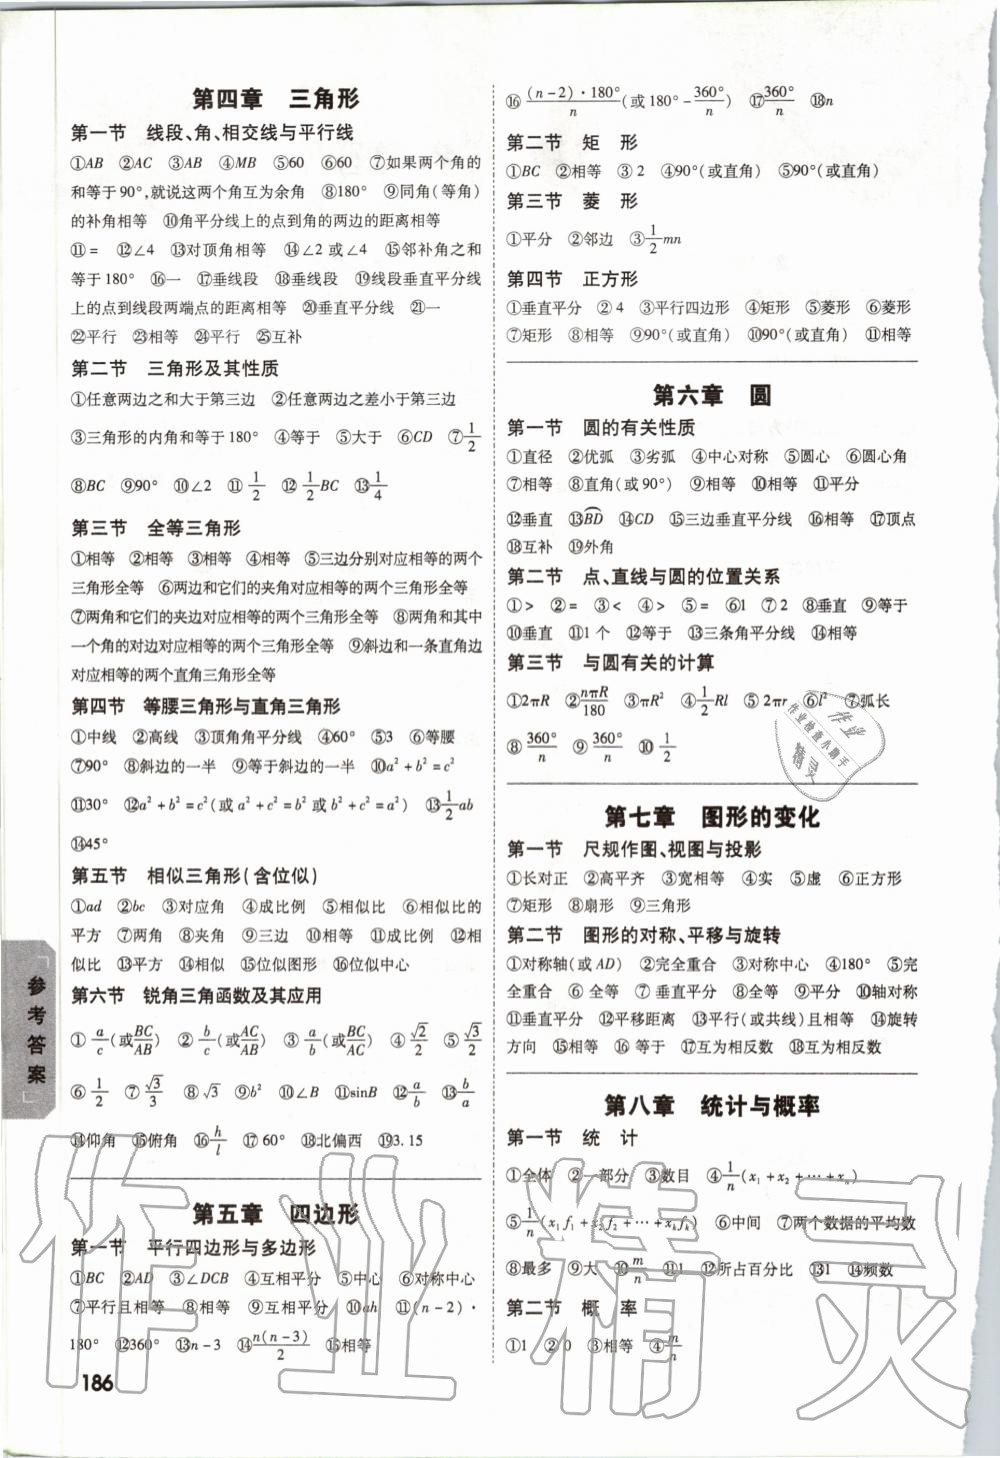 第四章 三角形
第一节 线段、角、相交线与平行线
①AB ②AC ③AB ④MB ⑤60 ⑥60 ⑦如果两个角的
和等于90°,就说这两个角互为余角 ⑧180° ⑨同角(等角)
的补角相等 ⑩角平分线上的点到角的两边的距离相等
⑪= ⑫∠4 ⑬对顶角相等 ⑭∠2或∠4 ⑮邻补角之和
等于180° ⑯一 ⑰垂线段 ⑱垂线段 ⑲线段垂直平分线
上的点到线段两端点的距离相等 ⑳垂直平分线 ㉑一
㉒平行 ㉓相等 ㉔平行 ㉕互补
第二节 三角形及其性质
①任意两边之和大于第三边 ②任意两边之差小于第三边
③三角形的内角和等于180° ④等于 ⑤大于 ⑥CD ⑦1/2
⑧BC ⑨90° ⑩∠2 ⑪1/2 ⑫1/2BC ⑬1/4
第三节 全等三角形
①相等 ②相等 ③相等 ④相等 ⑤三边分别对应相等的两个
三角形全等 ⑥两边和它们的夹角对应相等的两个三角形全等
⑦两角和它们的夹边对应相等的两个三角形全等 ⑧两角和其中
一个角的对边对应相等的两个三角形全等 ⑨斜边和一条直角边
对应相等的两个直角三角形全等
第四节 等腰三角形与直角三角形
①中线 ②高线 ③顶角角平分线 ④60° ⑤3 ⑥等腰
⑦90° ⑧斜边的一半 ⑨等于斜边的一半 ⑩a²+b²=c²
⑪30° ⑫a²+b²=c²(或a²+c²=b²或b²+c²=a²) ⑬1/2ab
⑭45°
第五节 相似三角形(含位似)
①ad ②bc ③对应角 ④成比例 ⑤相似比 ⑥相似比的
平方 ⑦两角 ⑧夹角 ⑨三边 ⑩相等 ⑪成比例 ⑫相
似比 ⑬平方 ⑭相似 ⑮位似图形 ⑯位似中心
第六节 锐角三角函数及其应用
①a/c(或BC/AB) ②b/c(或AC/AB) ③a/b(或BC/AC) ④√2/2 ⑤√3/2
⑥1/2 ⑦√3/3 ⑧√3 ⑨b² ⑩∠B ⑪sinB ⑫a/b ⑬b/a
⑭仰角 ⑮俯角 ⑯h/l ⑰60° ⑱北偏西 ⑲3.15
第五章 四边形
第一节 平行四边形与多边形
①BC ②AD ③∠DCB ④互相平分 ⑤中心 ⑥对称中心
⑦平行且相等 ⑧相等 ⑨互相平分 ⑩ah ⑪(n-2)·
180° ⑫360° ⑬n-3 ⑭n(n-3)/2 ⑮相等
186
参考答案
⑯(n-2)·180°/n(或180°-360°/n) ⑰360°/n ⑱n
第二节 矩 形
①BC ②相等 ③2 ④90°(或直角) ⑤90°(或直角)
第三节 菱 形
①平分 ②邻边 ③1/2mn
第四节 正方形
①垂直平分 ②4 ③平行四边形 ④矩形 ⑤菱形 ⑥菱形
⑦矩形 ⑧相等 ⑨90°(或直角) ⑩90°(或直角) ⑪相等
第六章 圆
第一节 圆的有关性质
①直径 ②优弧 ③劣弧 ④中心对称 ⑤圆心 ⑥圆心角
⑦相等 ⑧直角(或90°) ⑨相等 ⑩相等 ⑪平分
⑫垂直 ⑬B͡D ⑭CD ⑮三边垂直平分线 ⑯相等 ⑰顶点
⑱互补 ⑲外角
第二节 点、直线与圆的位置关系
①> ②= ③< ④> ⑤= ⑥1 ⑦2 ⑧垂直 ⑨等于
⑩垂直 ⑪1个 ⑫等于 ⑬三条角平分线 ⑭相等
第三节 与圆有关的计算
①2πR ②nπR/180 ③πR² ④1/2Rl ⑤2πr ⑥l² ⑦弧长
⑧360°/n ⑨360°/n ⑩1/2
作业
作业检查小助手
精灵
第七章 图形的变化
第一节 尺规作图、视图与投影
①长对正 ②高平齐 ③宽相等 ④实 ⑤虚 ⑥正方形
⑦矩形 ⑧扇形 ⑨三角形
第二节 图形的对称、平移与旋转
①对称轴(或AD) ②完全重合 ③对称中心 ④180° ⑤完
全重合 ⑥全等 ⑦垂直平分 ⑧全等 ⑨平分 ⑩轴对称
⑪垂直平分 ⑫平移距离 ⑬平行(或共线)且相等 ⑭旋转
方向 ⑮相等 ⑯等于 ⑰互为相反数 ⑱互为相反数
第八章 统计与概率
第一节 统 计
①全体 ②一部分 ③数目 ④1/n(x₁+x₂+…+xₙ)
⑤1/n(x₁f₁+x₂f₂+…+xₖfₖ) ⑥中间 ⑦两个数据的平均数
⑧最多 ⑨大 ⑩m/n ⑪1 ⑫所占百分比 ⑬1 ⑭频数
第二节 概 率
①1 ②0 ③相等 ④m/n
作业精灵